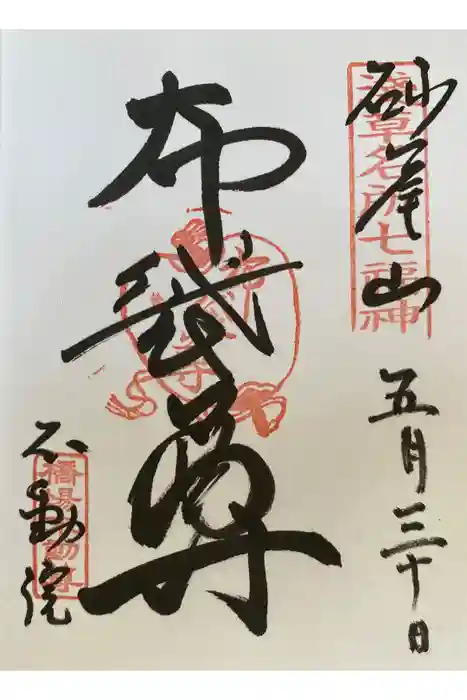 砂尾山
浅草名所七福神
五月三十日
布袋尊
不動院
橋場不動尊